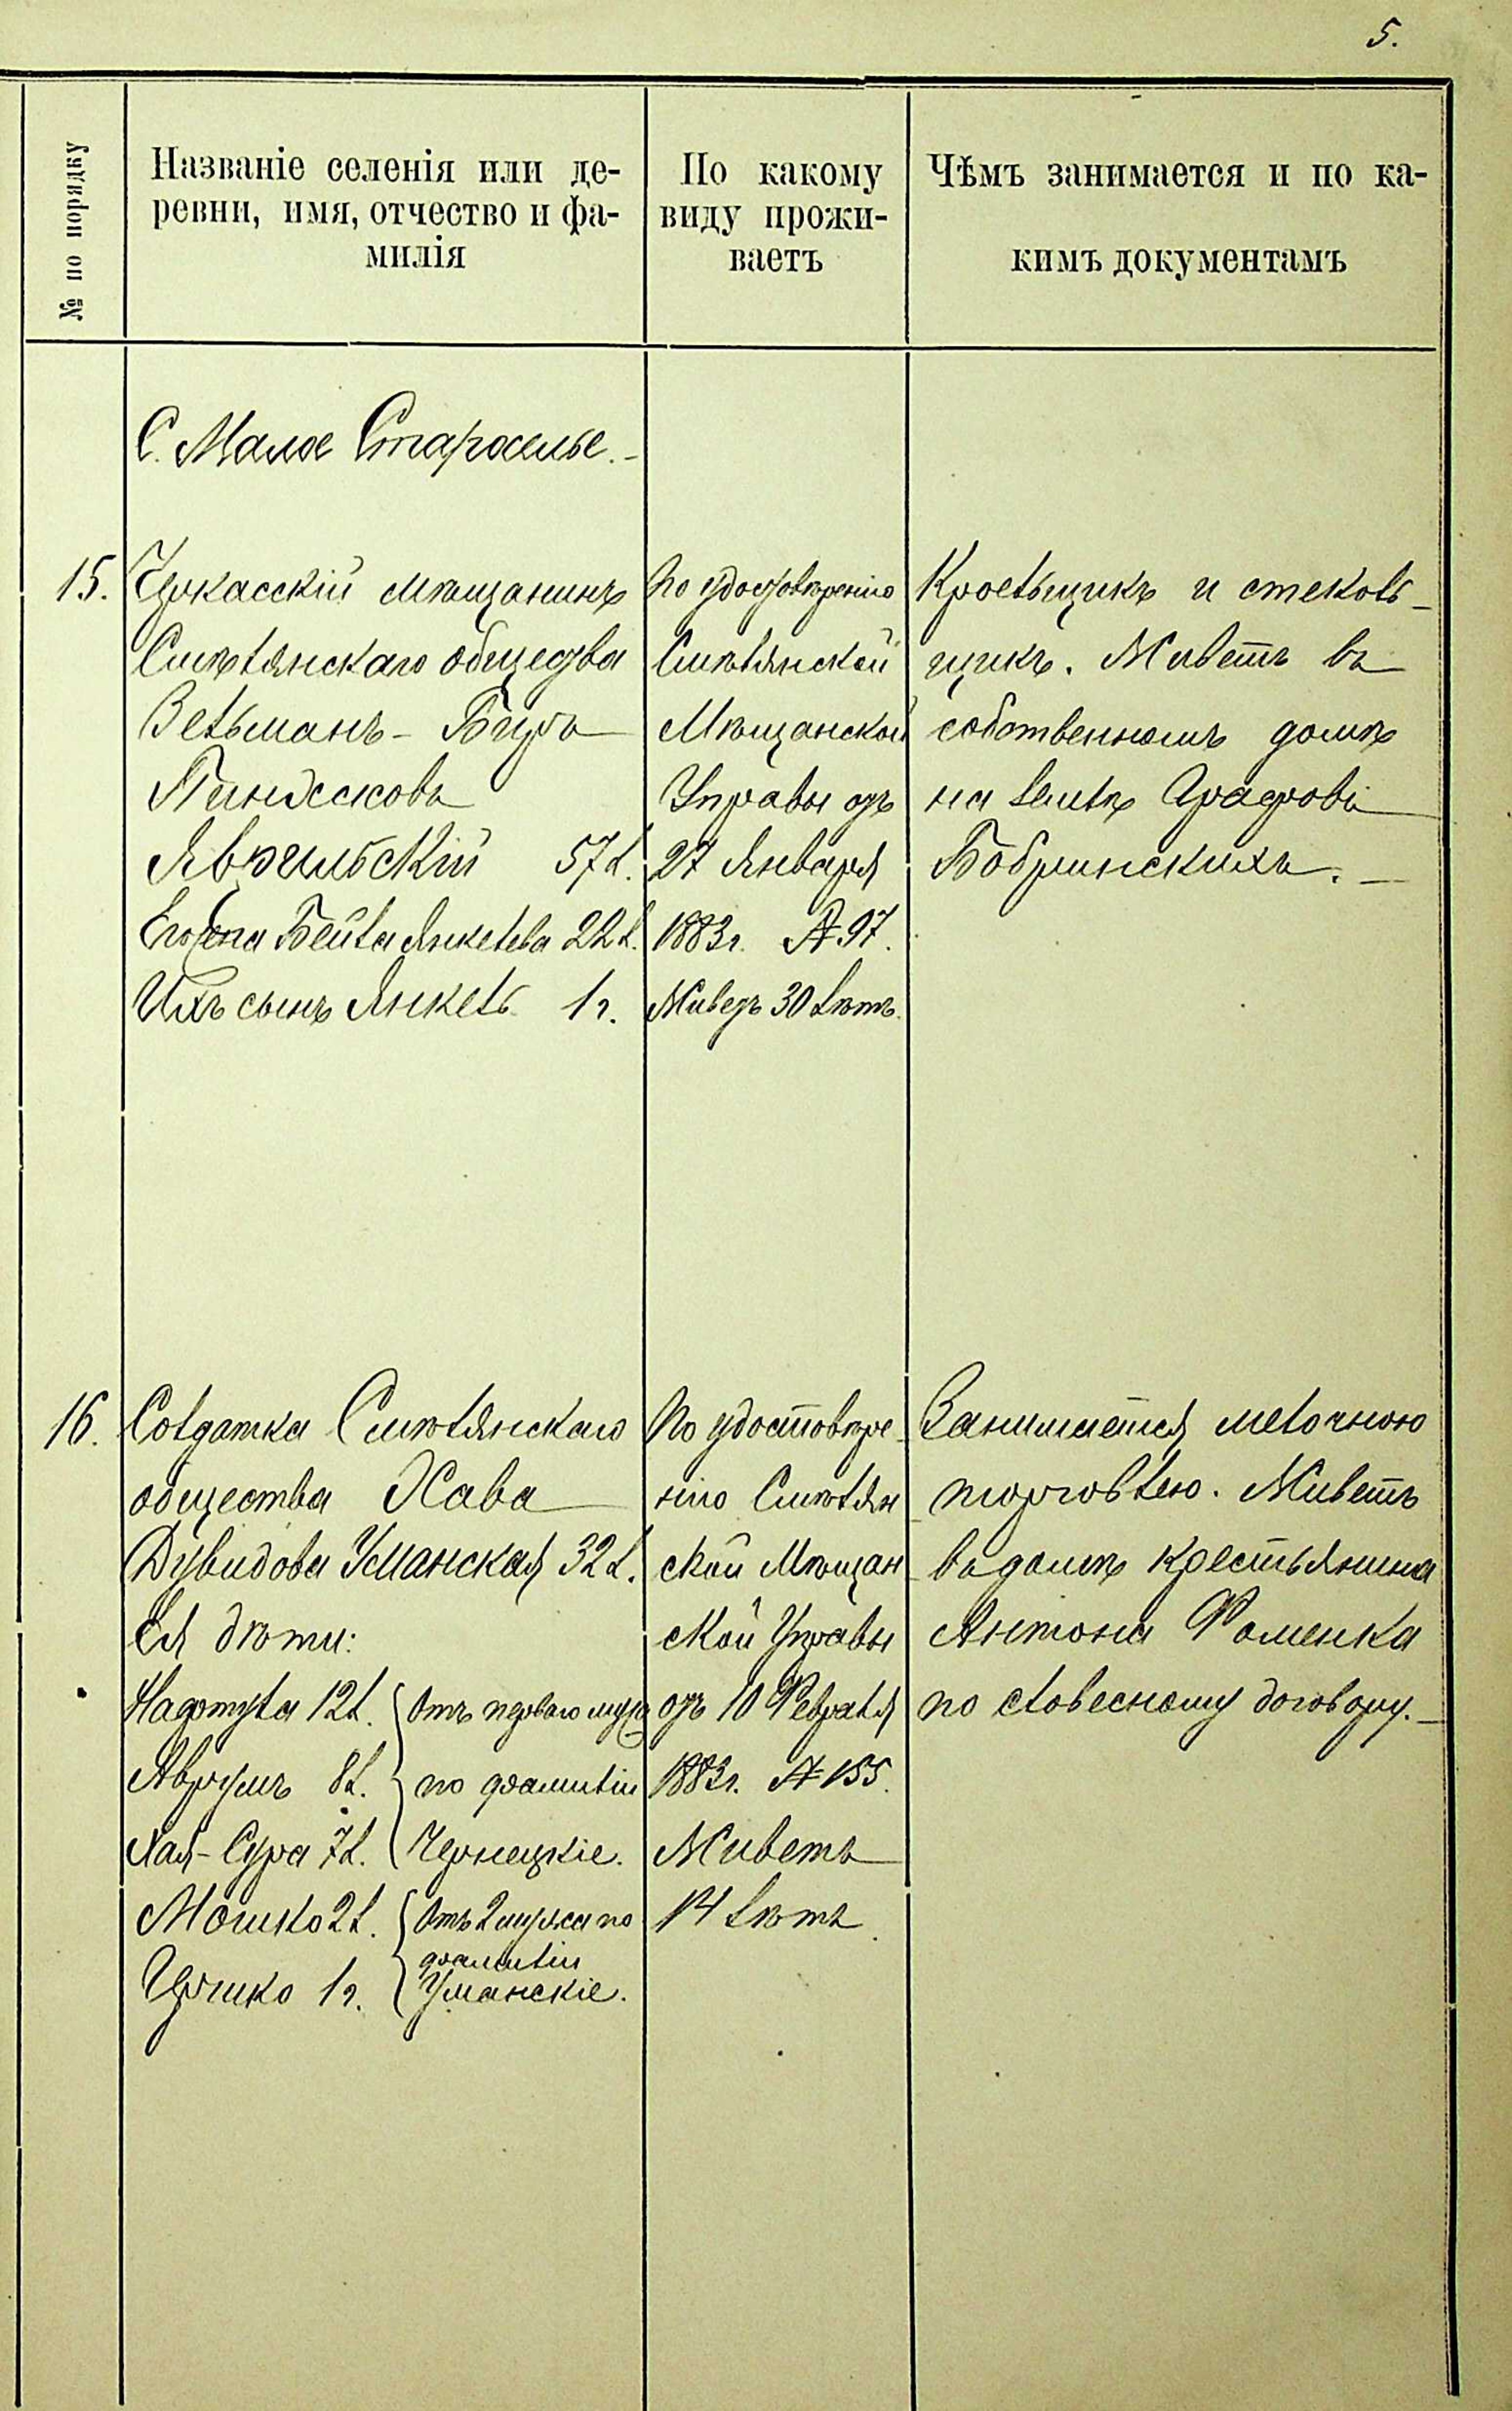 5.
№ по порядку
Названіе селенія или де-
ревни, имя, отчество и фа-
милія
По какому
виду прожи-
ваетъ
Чѣмъ занимается и по ка-
кимъ документамъ
С. Малое Староселье.-
15.
Черкасскій мѣщанинъ
Смѣлянскаго общества
Зельманъ - Беръ
Пинхасовъ
57 л.
Его жена Бейла Янкелева 22 л.
Ихъ сынъ Янкель 1 г.
По удостовѣренію
Смѣлянской
Мѣщанской
Управы отъ
27 Января
1883 г. № 97.
Живетъ 30 лѣтъ.
Кровельщикъ и стеколь-
щикъ. Живетъ въ
собственномъ домѣ
на землѣ Графовъ
Бобринскихъ. -
16.
Солдатка Смѣлянскаго
общества Хава
Дувидова Уманская 32 л.
Ея дѣти:
12 л.
Аврумъ 8 л.
Хая - Сура 7 л.
Отъ перваго мужа
по фамиліи
Чернецкіе.
Мошко 2 л.
Ершко 1 г.
Отъ 2 мужа по
фамиліи
Уманскіе.
По удостовѣре-
нію Смѣлян
ской Мѣщан
ской Управы
отъ 10 Февраля
1883 г. № 155.
Живетъ
14 лѣтъ.
Занимается мелочною
торговлею. Живетъ
въ домѣ крестьянина
Антона Фоменка
по словесному договору. -